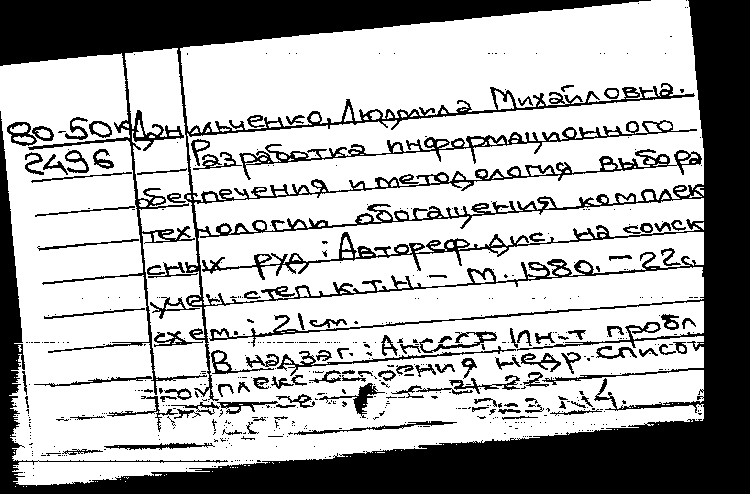 80-50к Данильченко, Людмила Михайловна.
2496 Разработка информационного
обеспечения и методология выбора
технологии обогащения комплек
сных руд : Автореф. дис. на соиск
учен. степ. к.т.н. - М., 1980. - 22с,
схем.; 21см.
В надзаг.: АНСССР, Ин-т пробл
комплекс. освоения недр. список
с. 21-22.
Экз N4.